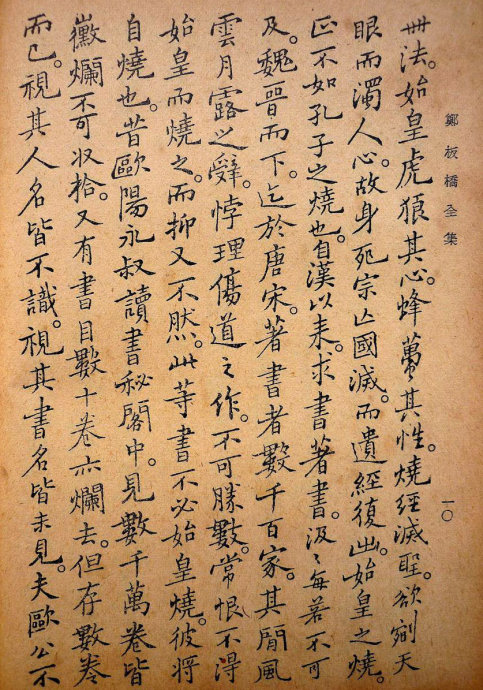 鄭板橋全集
一〇
丗法。始皇虎狼其心。蜂蠆其性。燒經滅聖。欲剜天
眼而濁人心。故身死宗亾國滅。而遺經復出。始皇之燒。
正不如孔子之燒也。自漢以来。求書著書。汲〻每若不可
及。魏晋而下。迄於唐宋。著書者數千百家。其間風
雲月露之辭。悖理傷道之作。不可勝數。常恨不得
始皇而燒之。而抑又不然。此等書不必始皇燒。彼將
自燒也。昔歐陽永叔讀書秘閣中。見數千萬卷皆
黴爛不可収拾。又有書目數十卷亦爛去。但存數卷
而已。視其人名皆不識。視其書名皆未見。夫歐公不